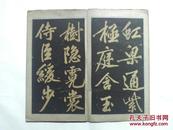 虹梁通紫
極庭含玉
樹隱霓裳
侍臣緩步